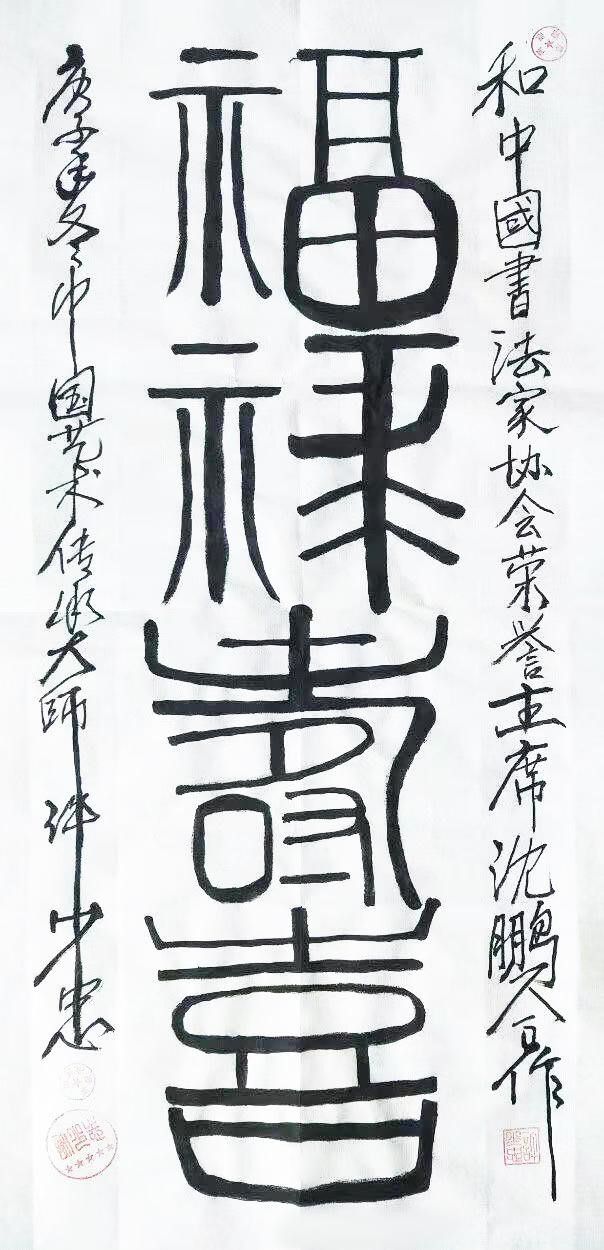 和中國書法家协会荣誉主席沈鵬合作
福禄壽喜
庚子年冬中国艺术传承大師许少忠